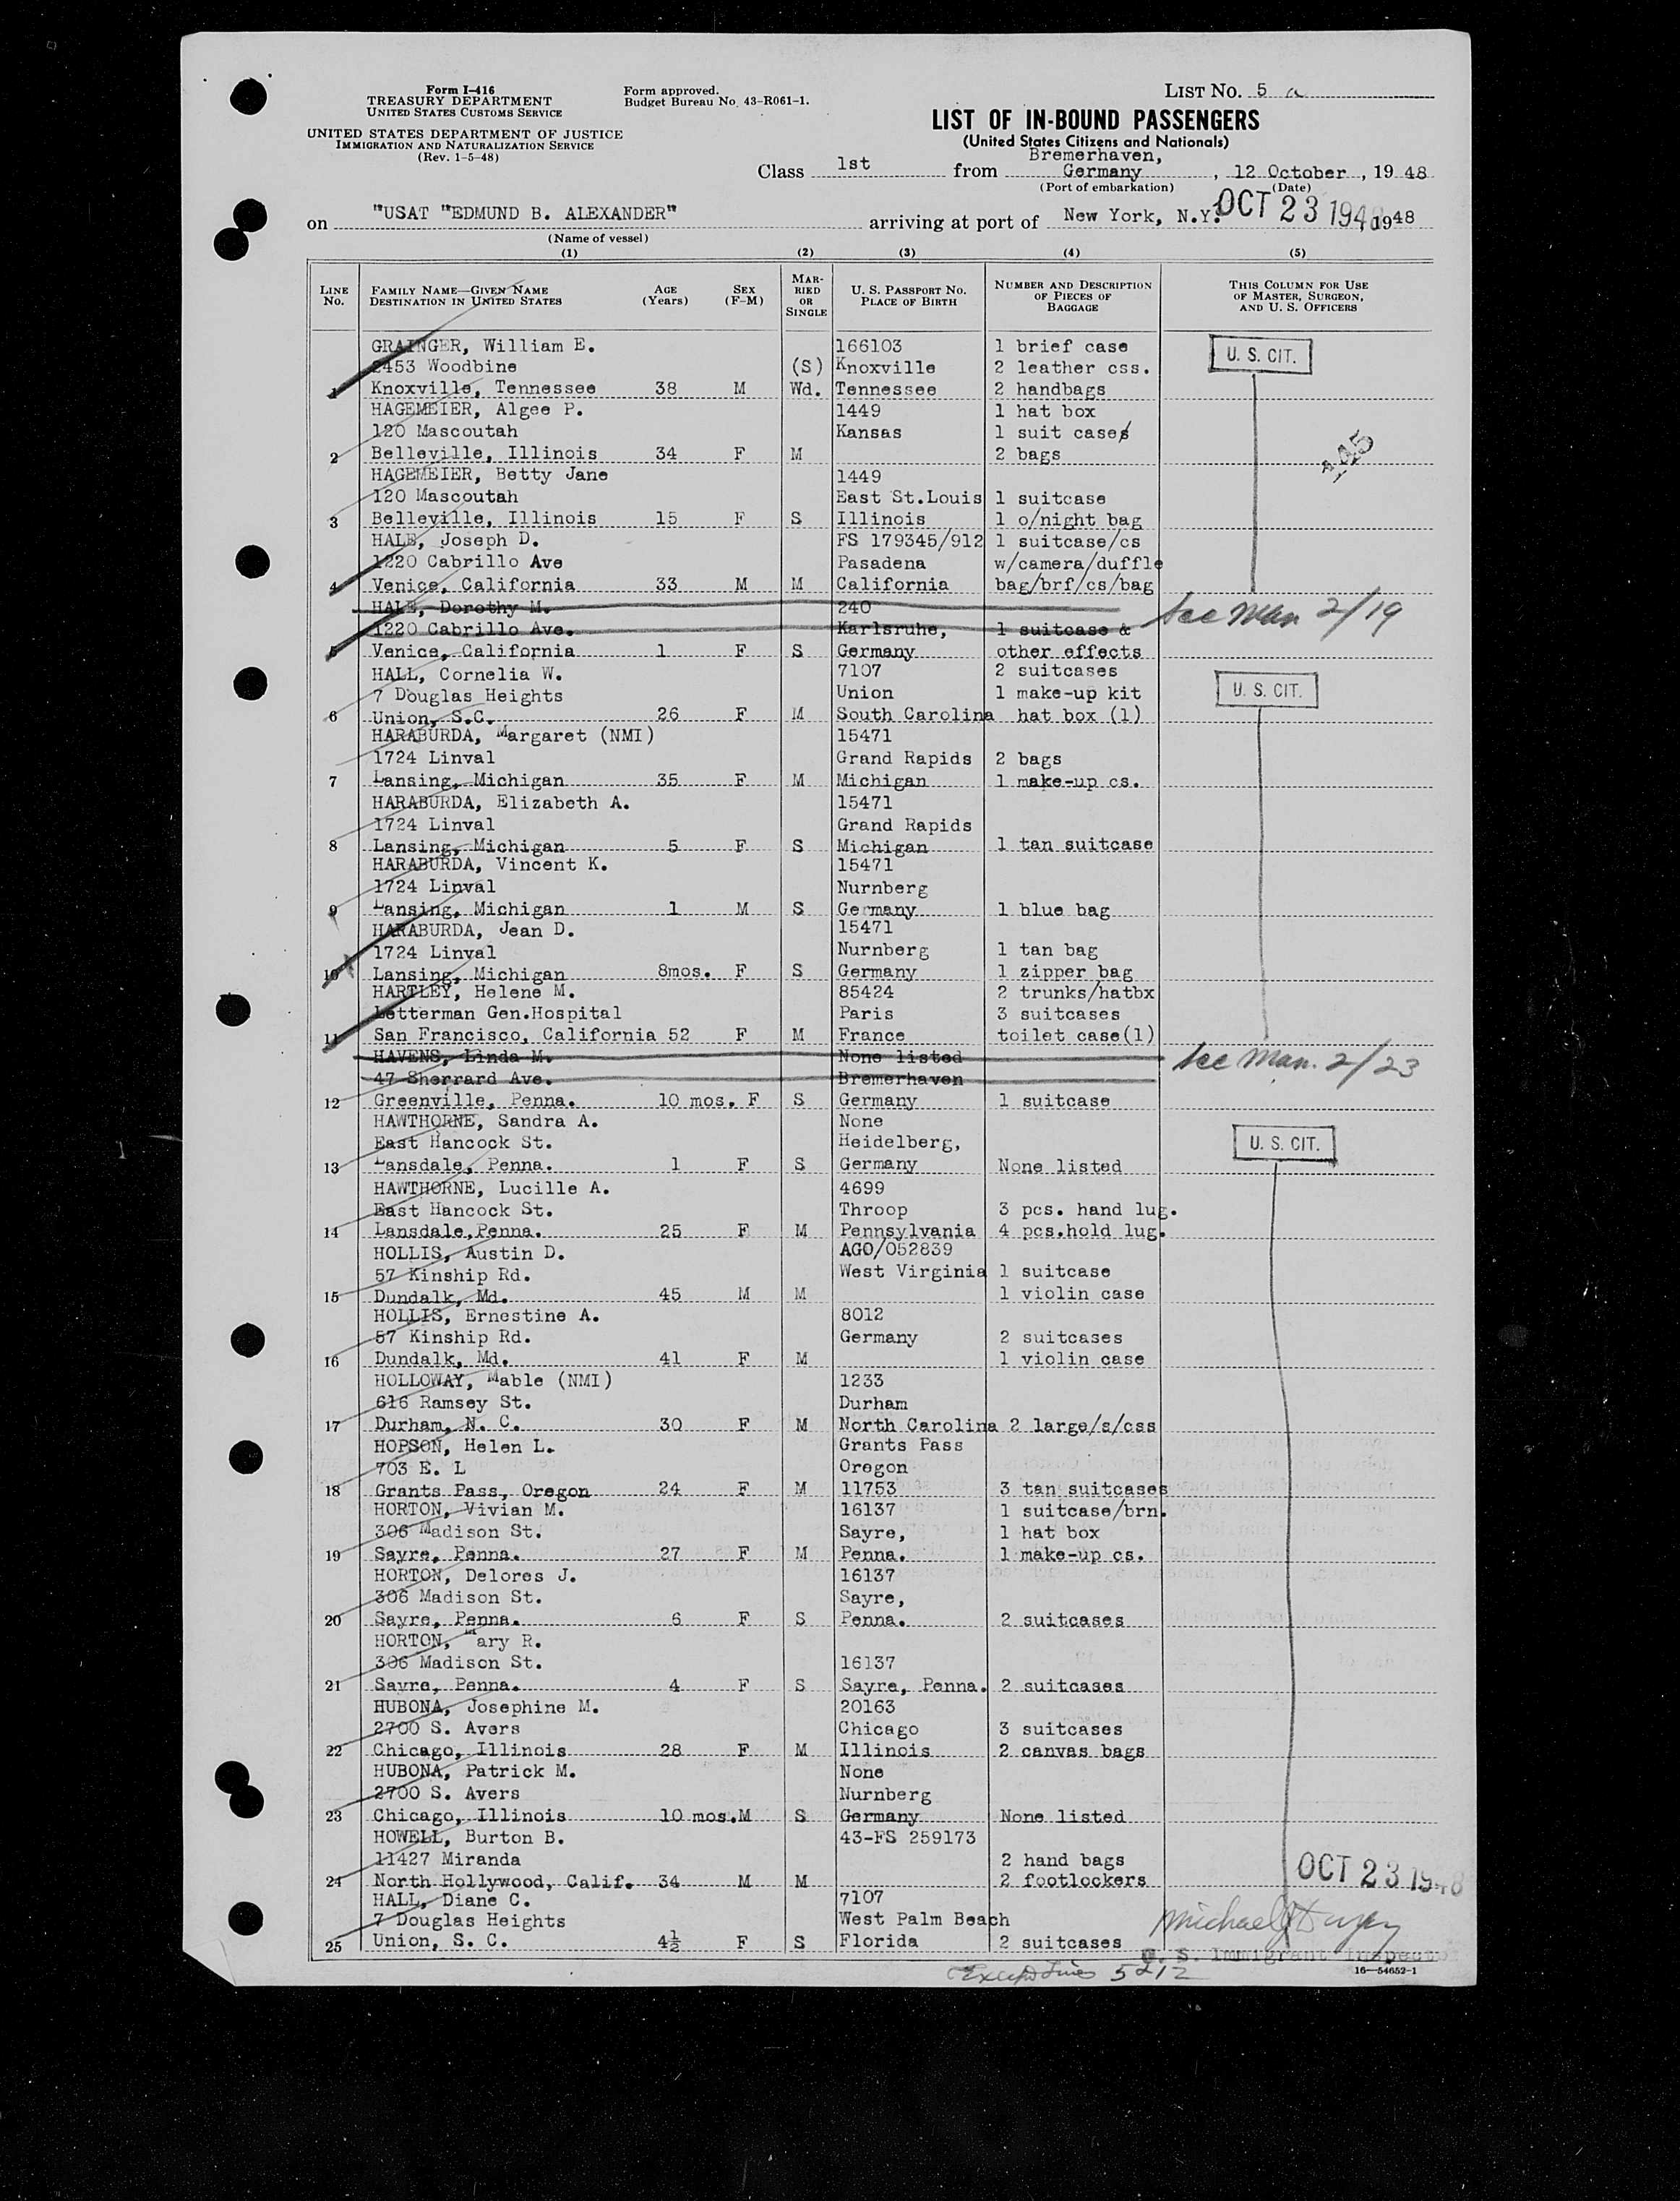 Form I-416
TREASURY DEPARTMENT
UNITED STATES CUSTOMS SERVICE
UNITED STATES DEPARTMENT OF JUSTICE
IMMIGRATION AND NATURALIZATION SERVICE
(Rev. 1-5-48)
Form approved.
Budget Bureau No. 43-R061-1.
LIST No. 5 a
LIST OF IN-BOUND PASSENGERS
(United States Citizens and Nationals)
Class 1st from Bremerhaven, Germany, 12 October, 1948
(Port of embarkation) (Date)
on "USAT "EDMUND B. ALEXANDER" arriving at port of New York, N.Y. OCT 23 1948, 1948
(Name of vessel)
(1) (2) (3) (4) (5)
LINE No. FAMILY NAME—GIVEN NAME DESTINATION IN UNITED STATES AGE (Years) SEX (F-M) MARRIED OR SINGLE U. S. PASSPORT NO. PLACE OF BIRTH NUMBER AND DESCRIPTION OF PIECES OF BAGGAGE THIS COLUMN FOR USE OF MASTER, SURGEON, AND U. S. OFFICERS
GRAINGER, William E. 166103 1 brief case U. S. CIT.
2453 Woodbine (S) Knoxville 2 leather css.
1 Knoxville, Tennessee 38 M Wd. Tennessee 2 handbags
HAGEMEIER, Algee P. 1449 1 hat box
120 Mascoutah Kansas 1 suit cases
2 Belleville, Illinois 34 F M 2 bags
HAGEMEIER, Betty Jane 1449
120 Mascoutah East St.Louis 1 suitcase
3 Belleville, Illinois 15 F S Illinois 1 o/night bag
HALE, Joseph D. FS 179345/912 1 suitcase/cs
1220 Cabrillo Ave Pasadena w/camera/duffle
4 Venice, California 33 M M California bag/brf/cs/bag
HALE, Dorothy M. 240 see Man 2/19
1220 Cabrillo Ave. Karlsruhe, 1 suitcase &
5 Venice, California 1 F S Germany other effects
HALL, Cornelia W. 7107 2 suitcases U. S. CIT.
7 Douglas Heights Union 1 make-up kit
6 Union, S.C. 26 F M South Carolina hat box (1)
HARABURDA, Margaret (NMI) 15471
1724 Linval Grand Rapids 2 bags
7 Lansing, Michigan 35 F M Michigan 1 make-up cs.
HARABURDA, Elizabeth A. 15471
1724 Linval Grand Rapids
8 Lansing, Michigan 5 F S Michigan 1 tan suitcase
HARABURDA, Vincent K. 15471
1724 Linval Nurnberg
9 Lansing, Michigan 1 M S Germany 1 blue bag
HARABURDA, Jean D. 15471
1724 Linval Nurnberg 1 tan bag
10 Lansing, Michigan 8mos. F S Germany 1 zipper bag
HARTLEY, Helene M. 85424 2 trunks/hatbx
Letterman Gen.Hospital Paris 3 suitcases
11 San Francisco, California 52 F M France toilet case(1)
HAVENS, Linda M. None listed see Man. 2/23
47 Sherrard Ave. Bremerhaven
12 Greenville, Penna. 10 mos. F S Germany 1 suitcase
HAWTHORNE, Sandra A. None
East Hancock St. Heidelberg, U. S. CIT.
13 Lansdale, Penna. 1 F S Germany None listed
HAWTHORNE, Lucille A. 4699
East Hancock St. Throop 3 pcs. hand lug.
14 Lansdale,Penna. 25 F M Pennsylvania 4 pcs.hold lug.
HOLLIS, Austin D. AGO/052839
57 Kinship Rd. West Virginia 1 suitcase
15 Dundalk, Md. 45 M M 1 violin case
HOLLIS, Ernestine A. 8012
57 Kinship Rd. Germany 2 suitcases
16 Dundalk, Md. 41 F M 1 violin case
HOLLOWAY, Mable (NMI) 1233
616 Ramsey St. Durham
17 Durham, N. C. 30 F M North Carolina 2 large/s/css
HOPSON, Helen L. Grants Pass
703 E. L Oregon
18 Grants Pass, Oregon 24 F M 11753 3 tan suitcases
HORTON, Vivian M. 16137 1 suitcase/brn.
306 Madison St. Sayre, 1 hat box
19 Sayre, Penna. 27 F M Penna. 1 make-up cs.
HORTON, Delores J. 16137
306 Madison St. Sayre,
20 Sayre, Penna. 6 F S Penna. 2 suitcases
HORTON, Mary R.
306 Madison St. 16137
21 Sayre, Penna. 4 F S Sayre, Penna. 2 suitcases
HUBONA, Josephine M. 20163
2700 S. Avers Chicago 3 suitcases
22 Chicago, Illinois 28 F M Illinois 2 canvas bags
HUBONA, Patrick M. None
2700 S. Avers Nurnberg
23 Chicago, Illinois 10 mos.M S Germany None listed
HOWELL, Burton B. 43-FS 259173
11427 Miranda 2 hand bags
24 North Hollywood, Calif. 34 M M 2 footlockers OCT 23 1948
HALL, Diane C. 7107
7 Douglas Heights West Palm Beach Michael
25 Union, S. C. 4½ F S Florida 2 suitcases
U. S. Immigrant Inspector
Except Lines 5 & 12
16—54652-1